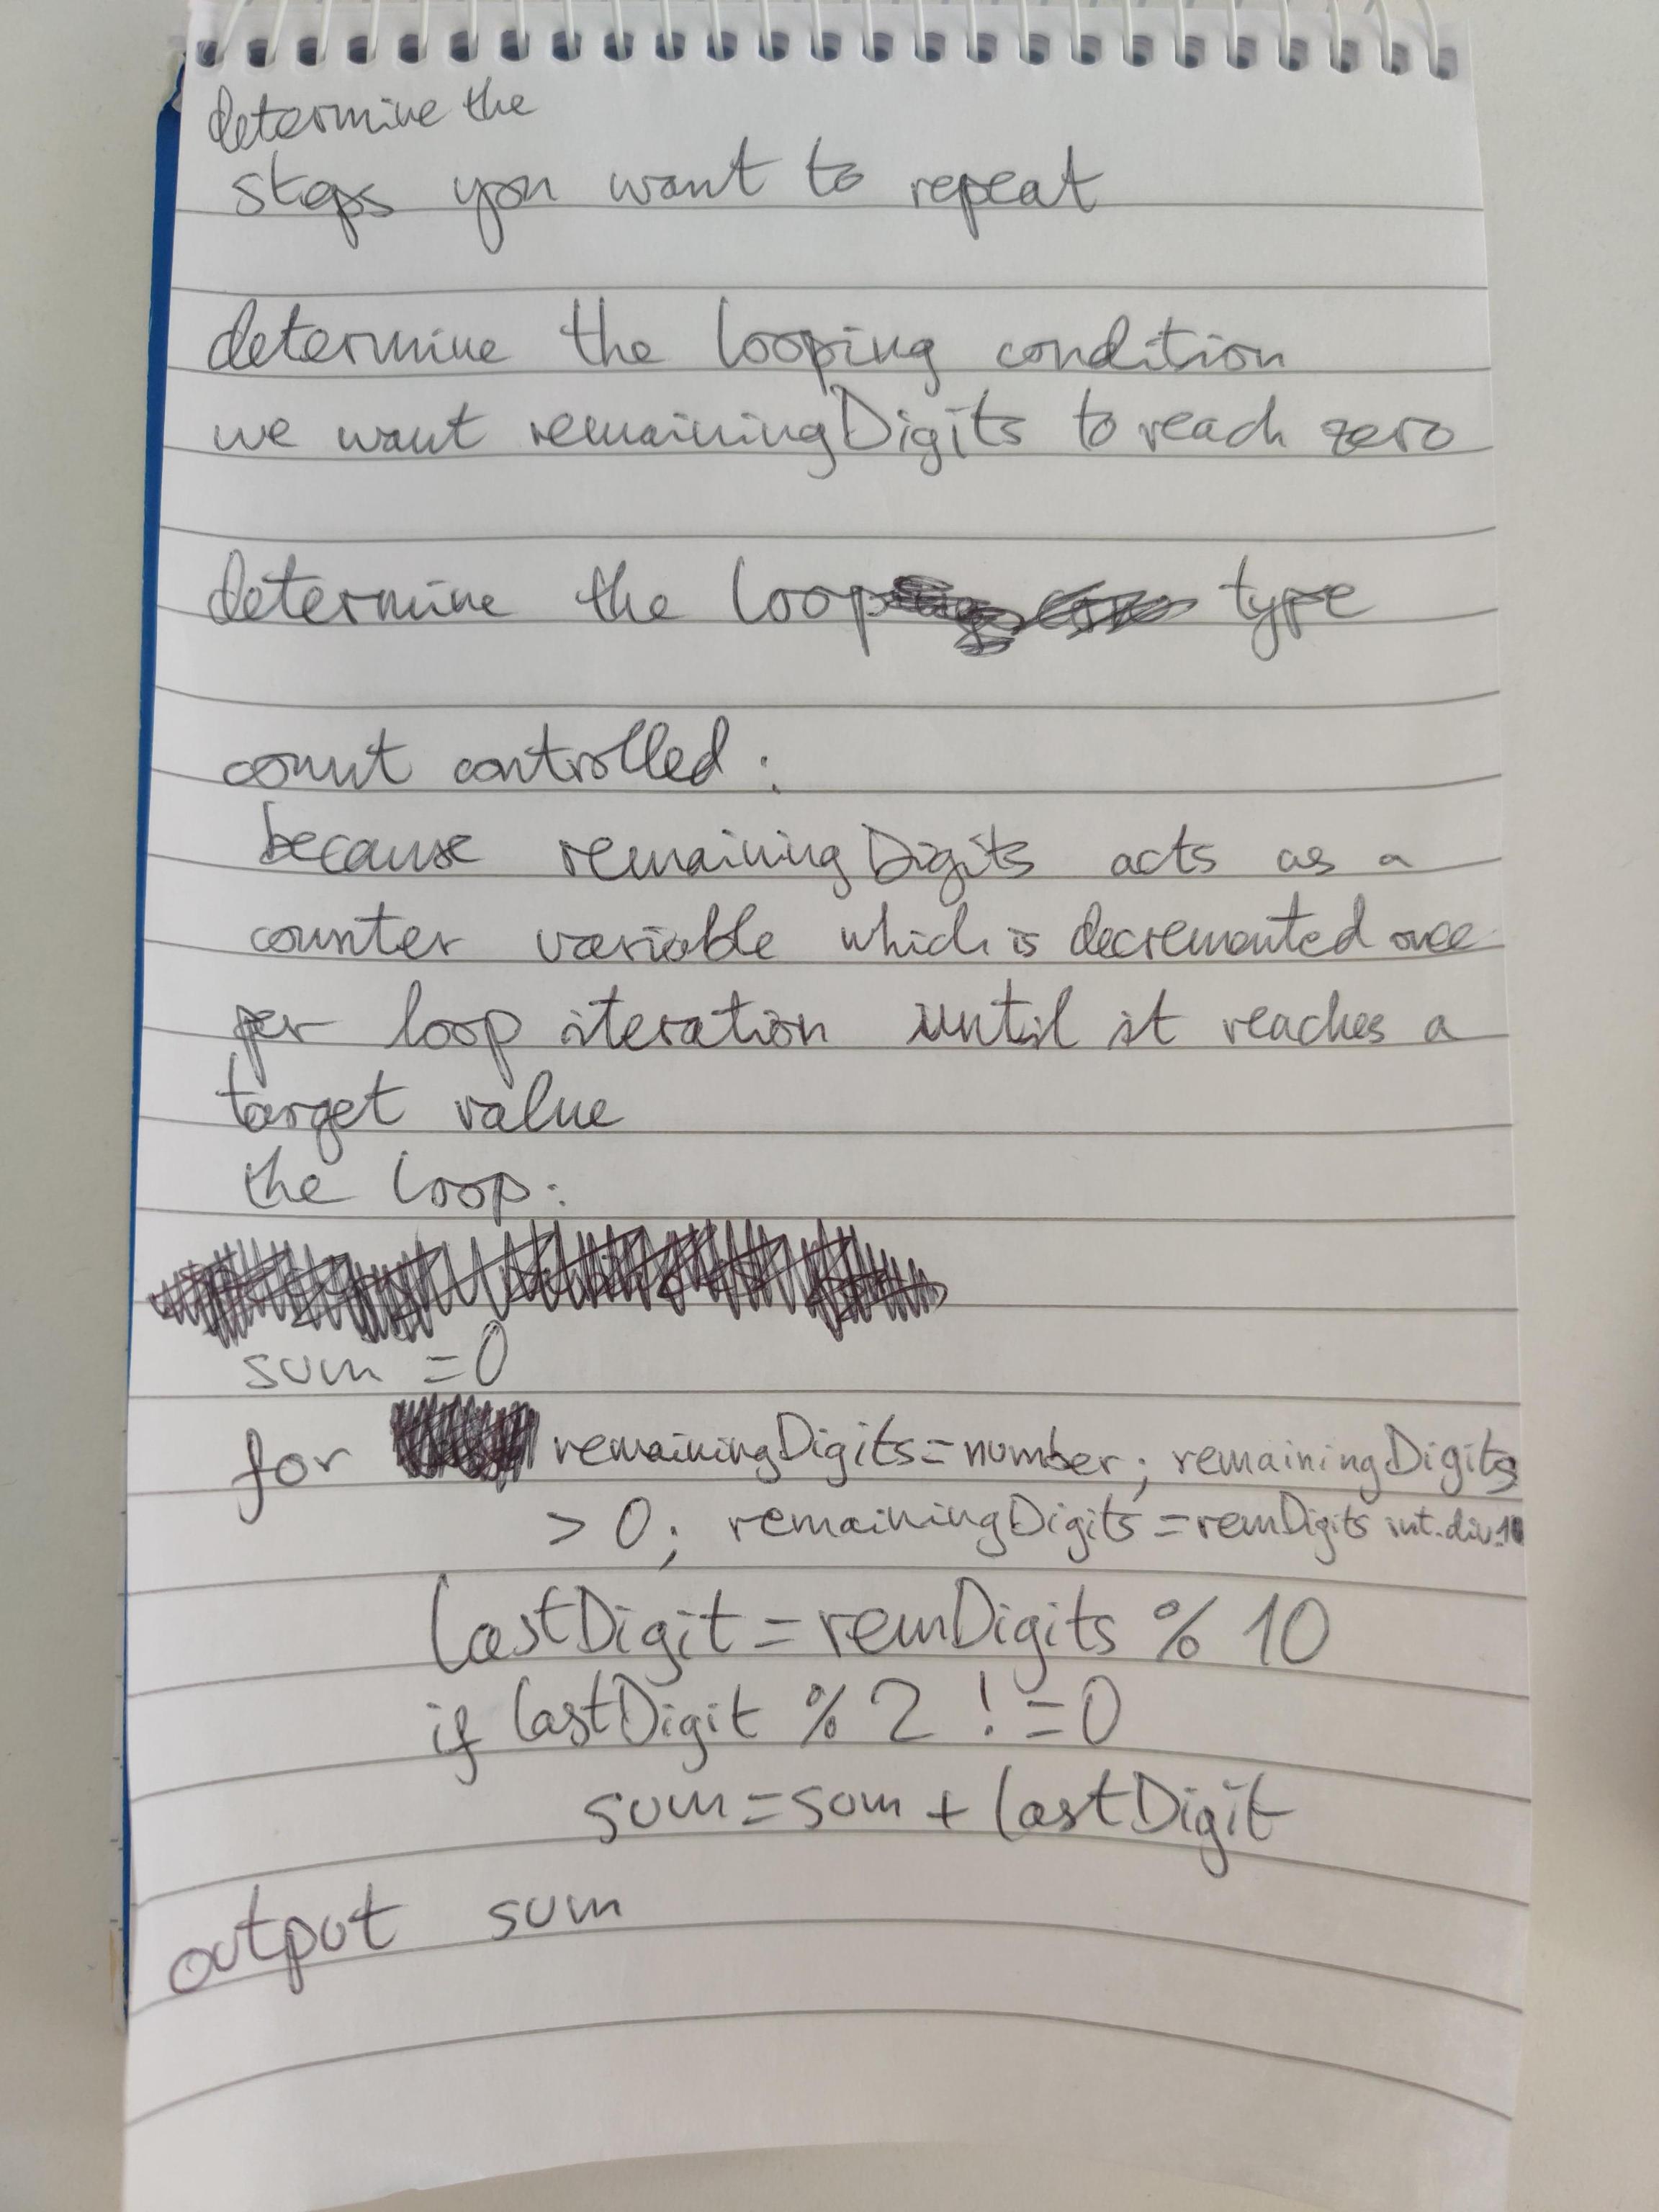 determine the
steps you want to repeat
determine the looping condition
we want remainingDigits to reach zero
determine the loop type
count controlled:
because remainingDigits acts as a
counter variable which is decremented once
per loop iteration until it reaches a
target value
the loop:
sum = 0
for remainingDigits = number; remainingDigits
> 0; remainingDigits = remDigits int.div.10
lastDigit = remDigits % 10
if lastDigit % 2 != 0
sum = sum + lastDigit
output sum